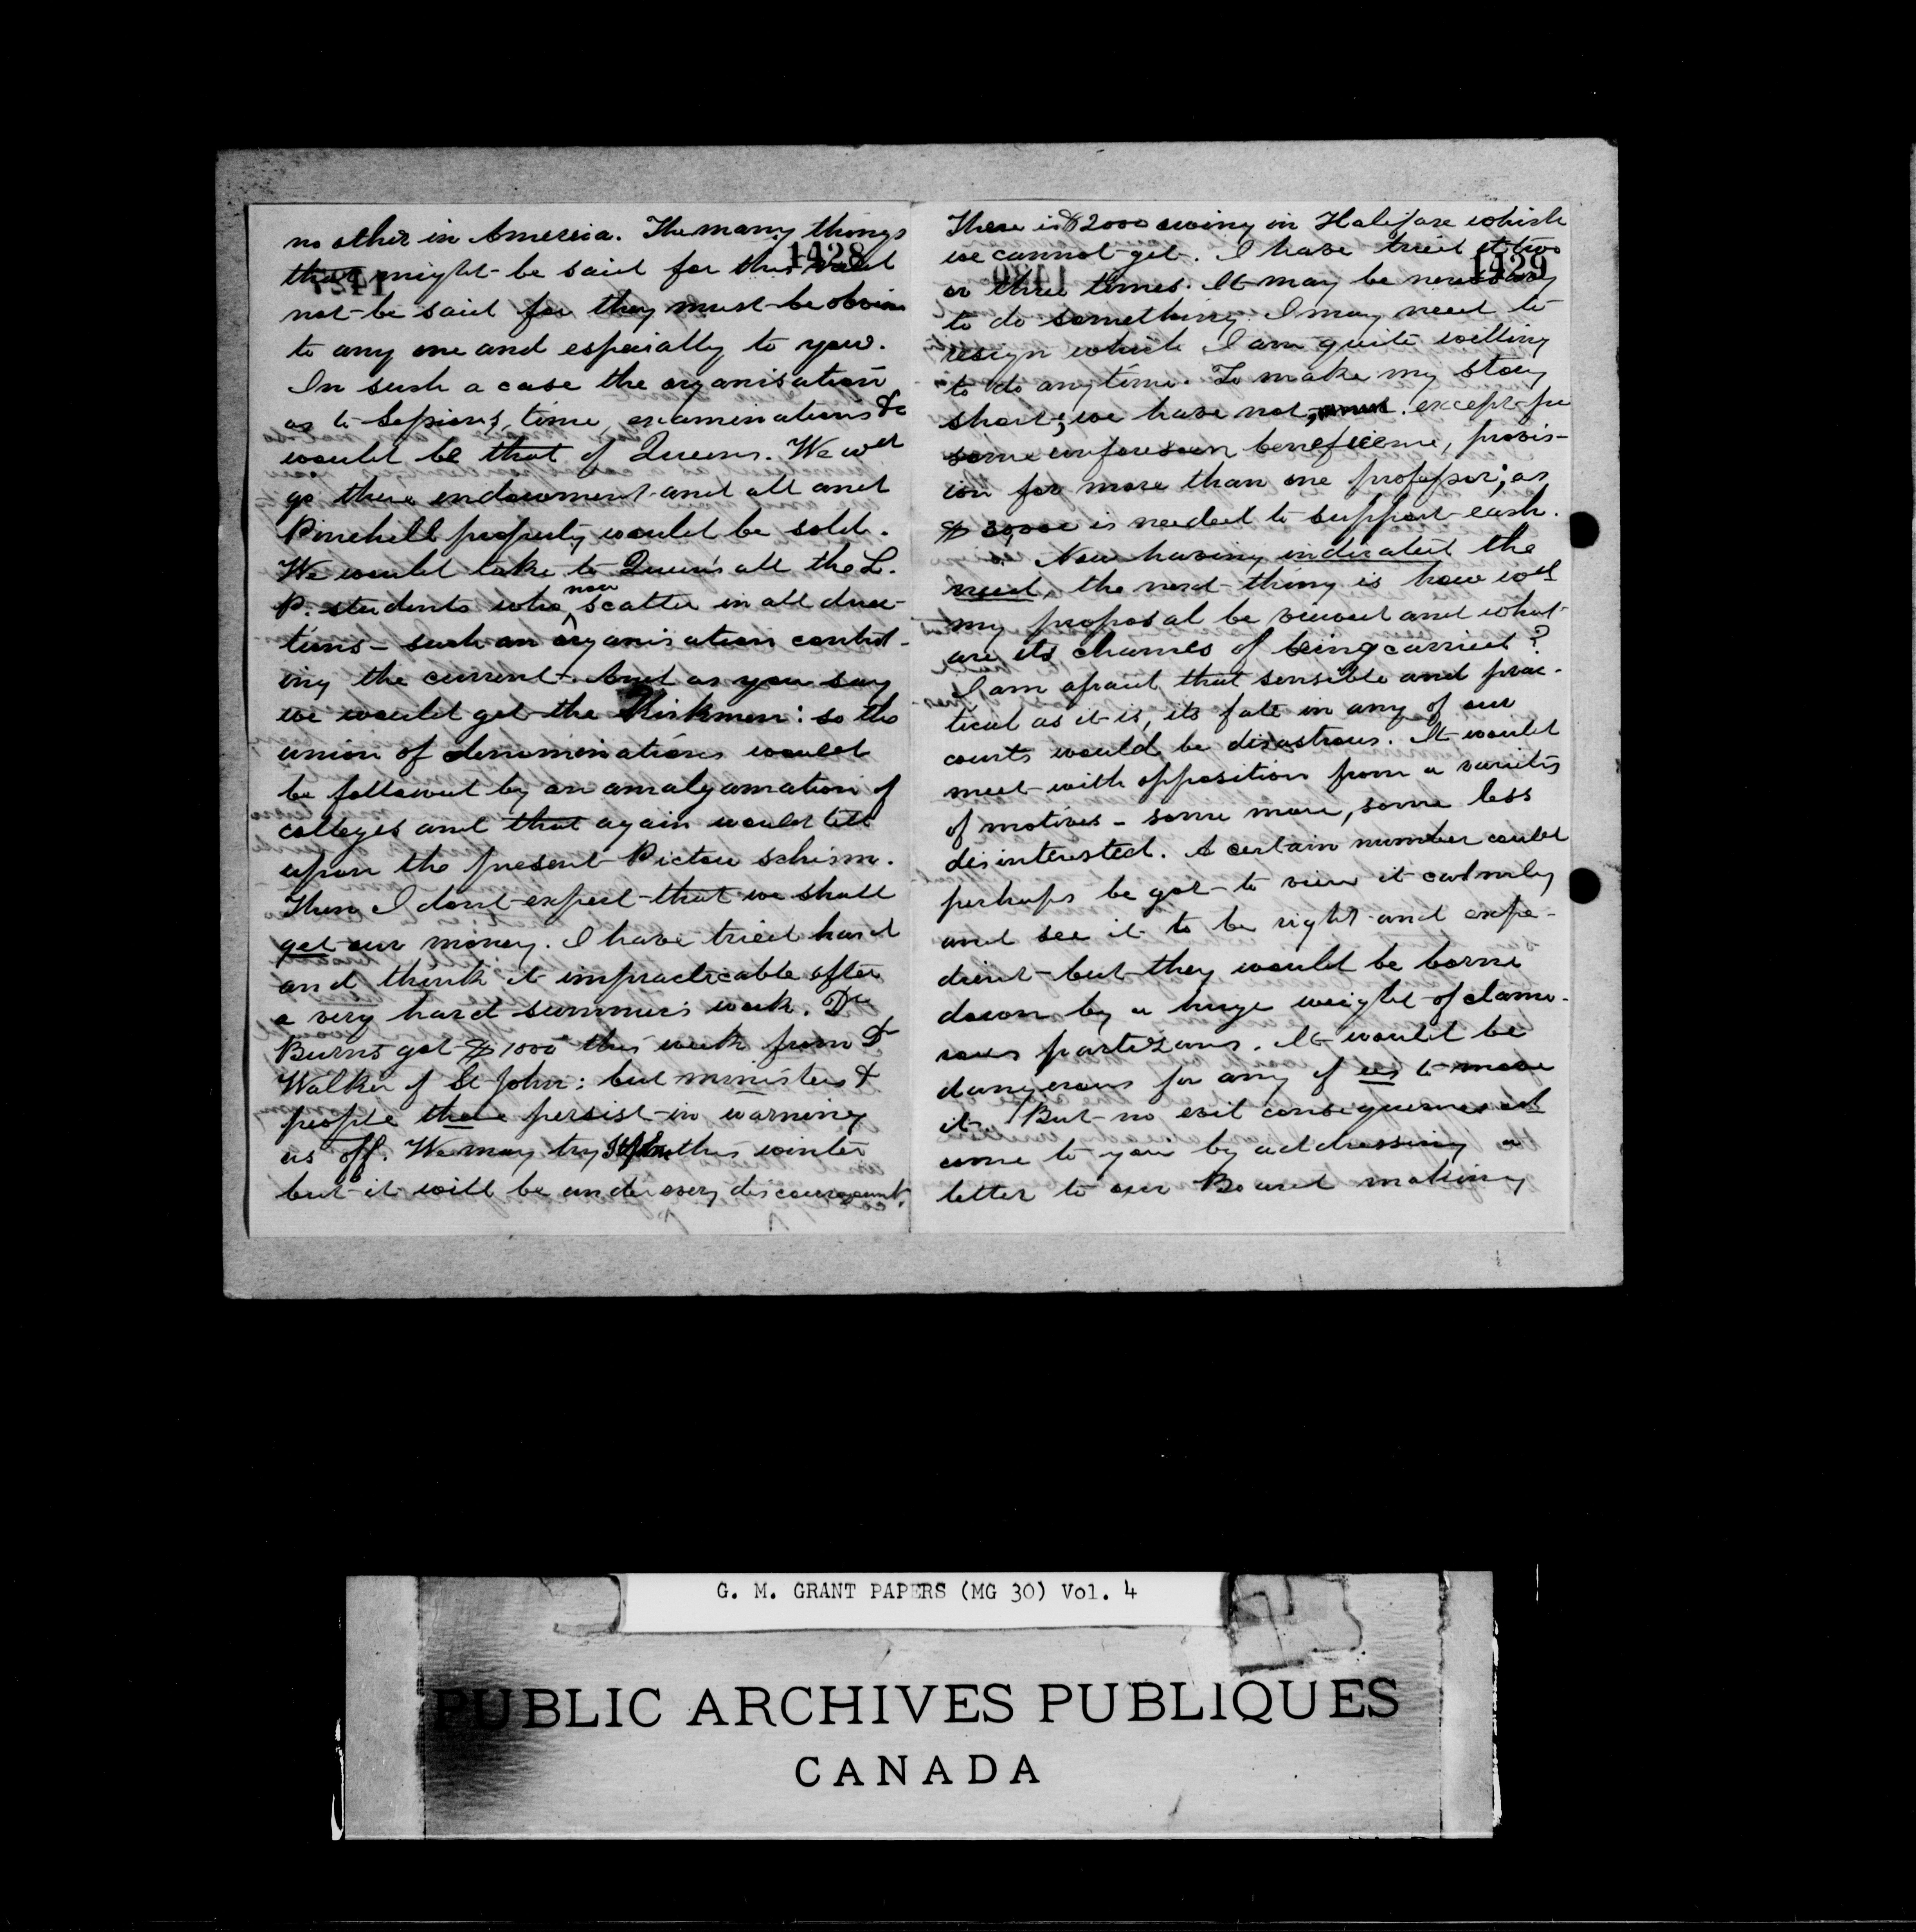 1428
no other in America. The many things
that might be said for this need
not be said for they must be obvious
to any one and especially to you.
In such a case the organisation
as to Sessions, time, examinations &c
would be that of Queens. We wd
go there endowment and all and
Pinehill property would be sold.
We would take to Queen's all the L.
P. students who now scatter in all direc-
tions - such an organisation control-
ing the current. And as you say
we would get the Kirkmen: so the
union of denominations would
be followed by an amalgamation of
colleges and that again would tell
upon the present Pictou schism.
Then I dont expect that we shall
get our money. I have tried hard
and think it impracticable after
a very hard summer's work. Dr
Burns got $1000 this week from Dr
Walker of St John: but ministers &
people there persist in warning
us off. We may try St John this winter
but it will be under every discouragement.
1429
There is $2000 owing in Halifax which
we cannot get. I have tried it two
or three times. It may be necessary
to do something. I may need to
resign which I am quite willing
to do any time. To make my story
short; we have not, except for
some unforeseen beneficence, provis-
ion for more than one professor; as
is needed to support each.
Now having indicated the
need, the next thing is how wd
my proposal be viewed and what
are its chances of being carried?
I am afraid that sensible and prac-
tical as it is, its fate in any of our
courts would be disastrous. It would
meet with opposition from a variety
of motives - some more, some less
disinterested. A certain number could
perhaps be got to view it calmly
and see it to be right and expe-
dient - but they would be borne
down by a huge weight of clamo-
rous partizans. It would be
dangerous for any of us to move
it. But no evil consequences wd
come to you by addressing a
letter to our Board making
G. M. GRANT PAPERS (MG 30) Vol. 4
PUBLIC ARCHIVES PUBLIQUES
CANADA